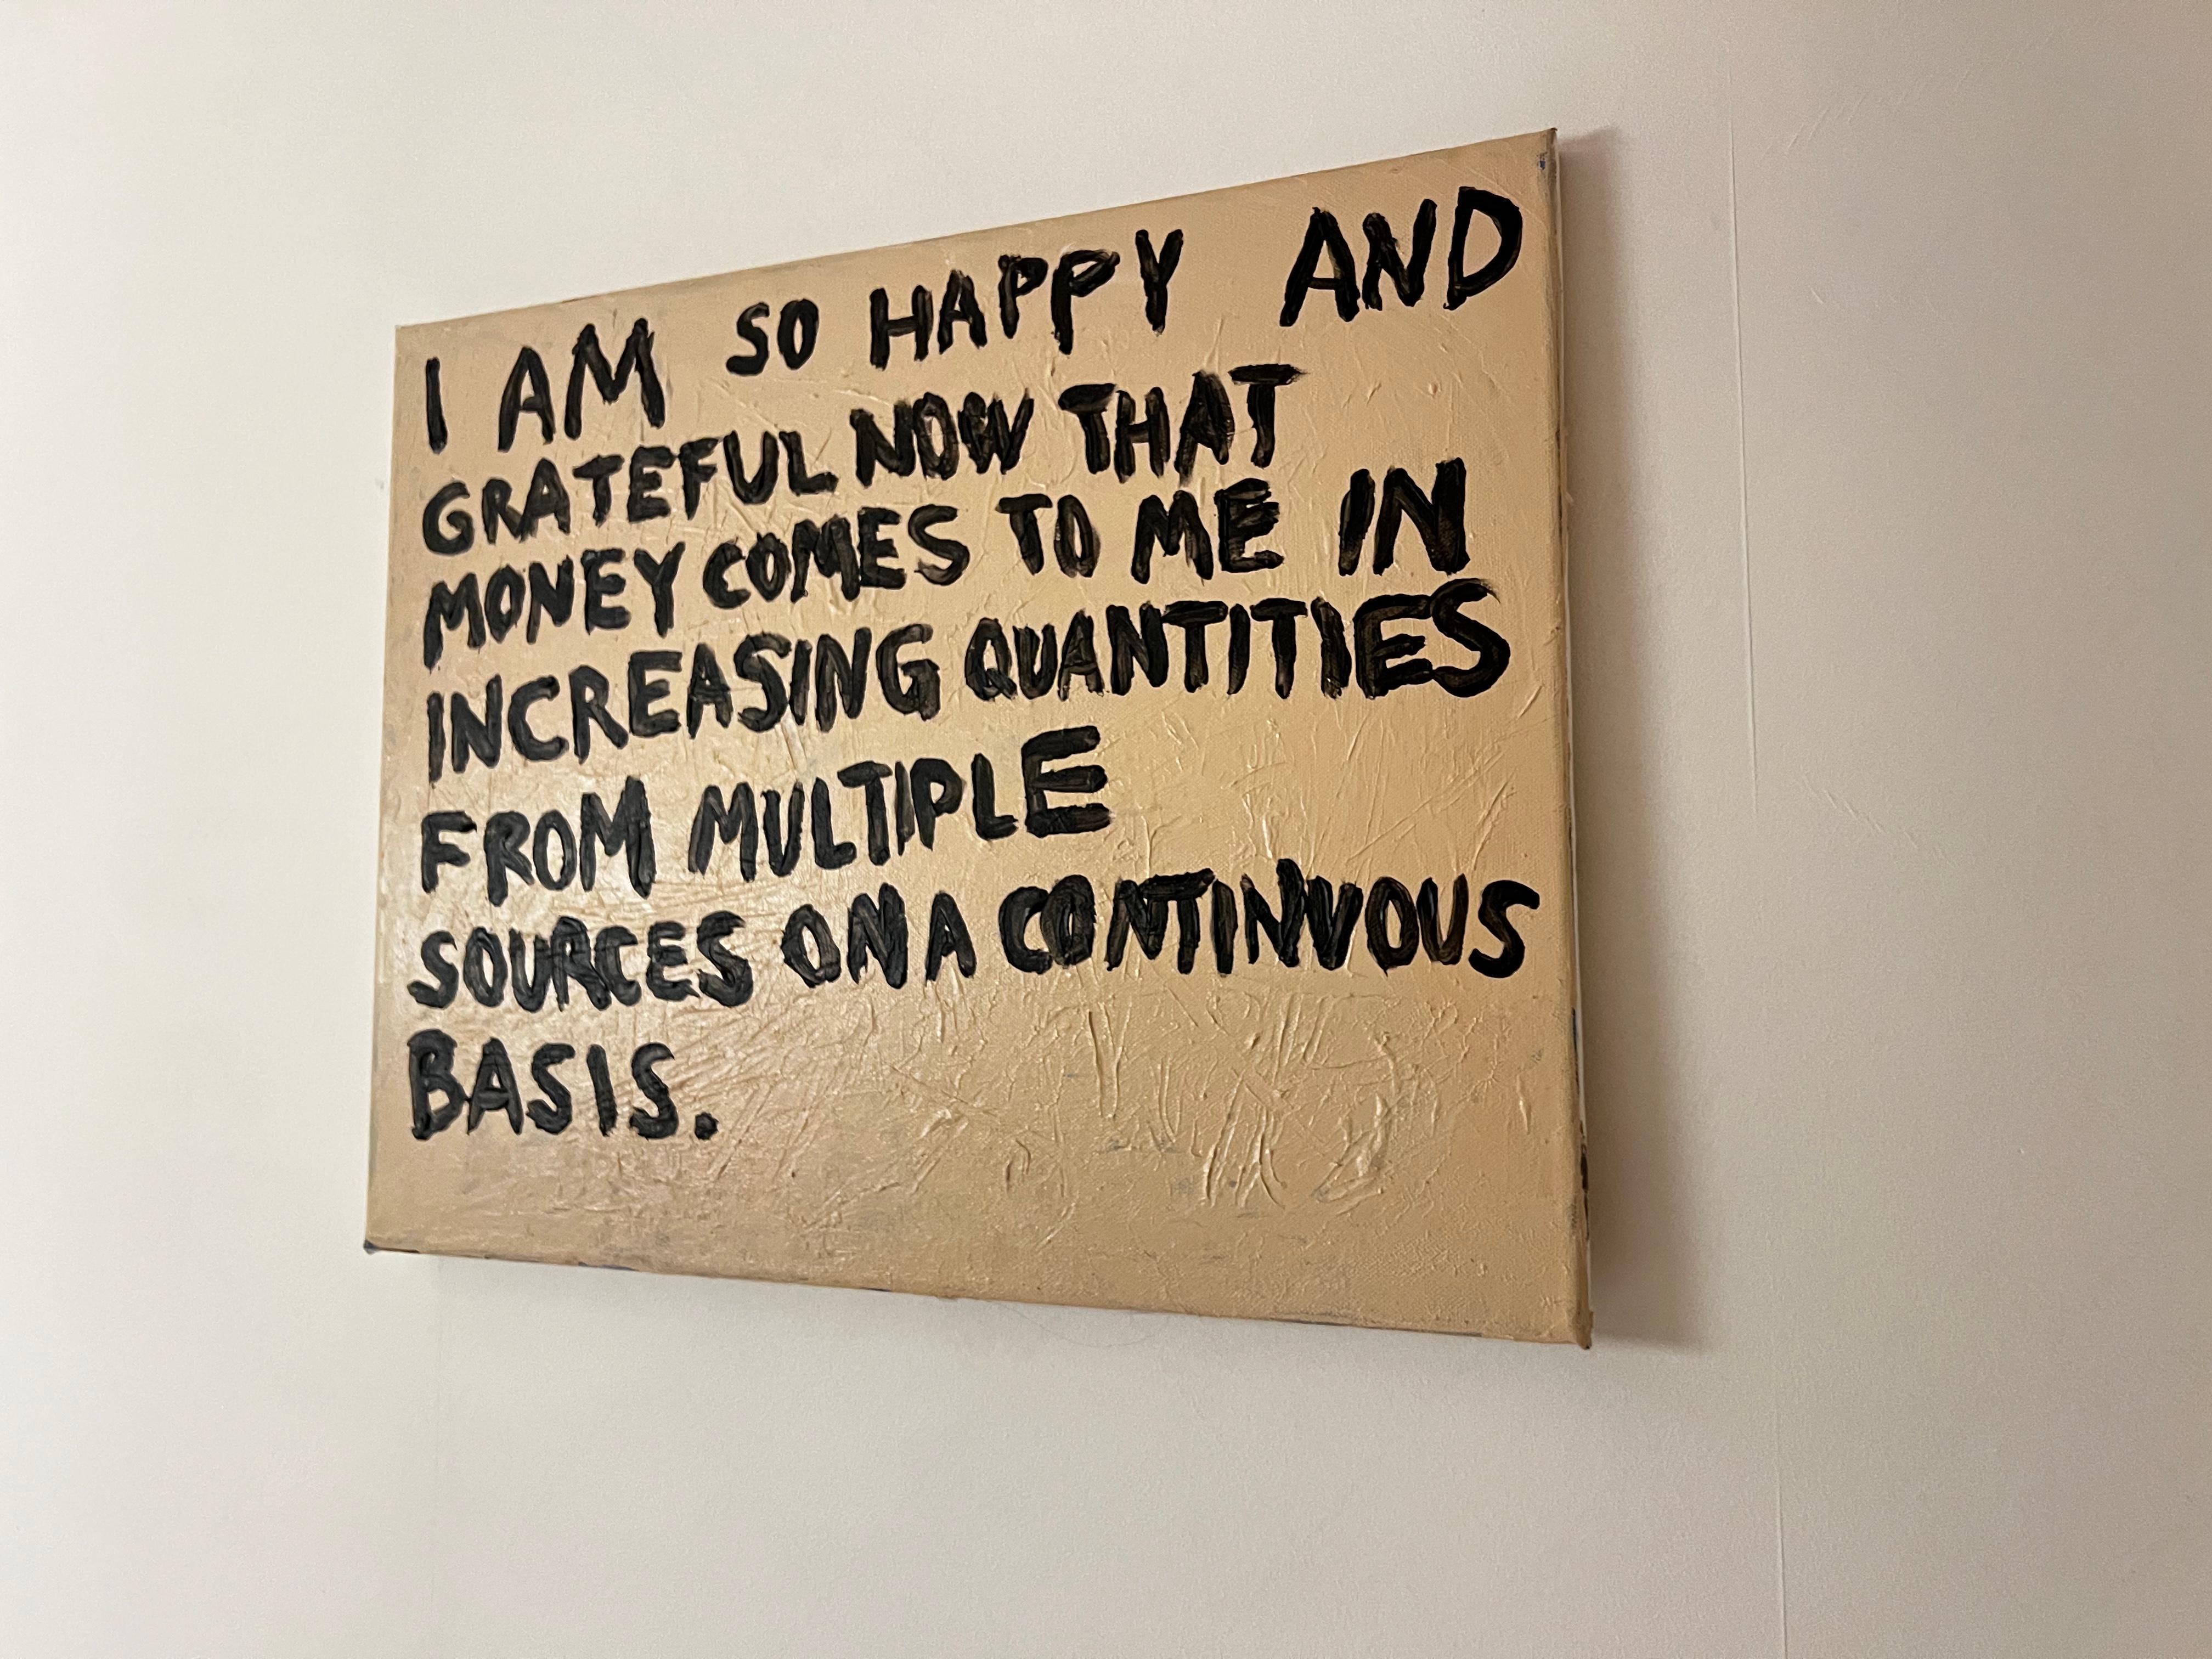 I AM SO HAPPY AND
GRATEFUL NOW THAT
MONEY COMES TO ME IN
INCREASING QUANTITIES
FROM MULTIPLE
SOURCES ON A CONTINVOUS
BASIS.